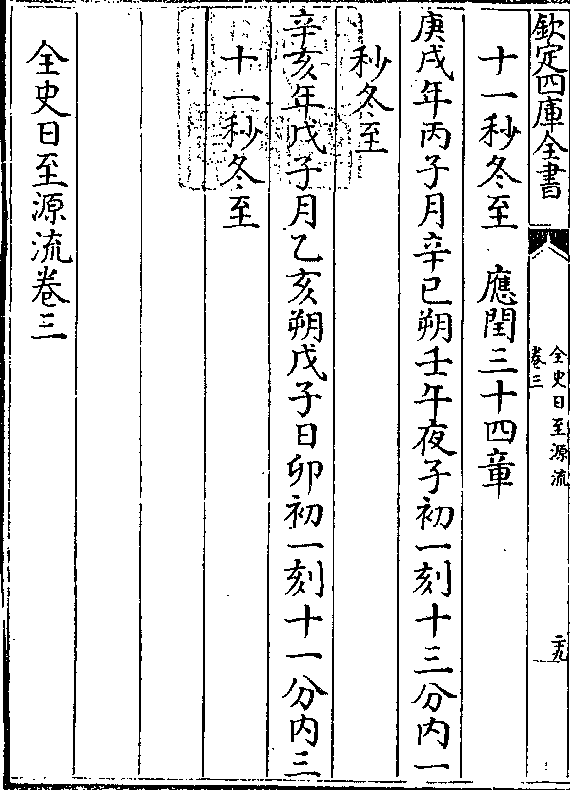 欽定四庫全書
全史日至源流
卷三
二十九
十一秒冬至　應閏三十四章
庚戌年丙子月辛巳朔壬午夜子初一刻十三分内一
秒冬至
辛亥年戊子月乙亥朔戊子日卯初一刻十一分内三
十一秒冬至
全史日至源流卷三